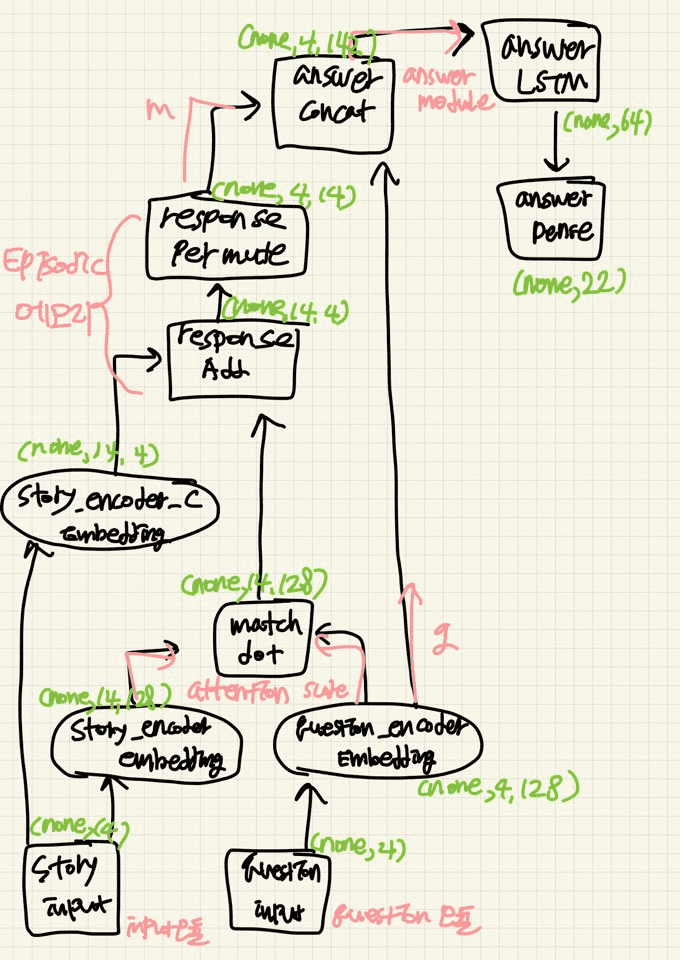 (none, 4, 142)
answer
concat
answer
module
answer
LSTM
(none, 64)
answer
Dense
(none, 22)
m
(none, 4, 14)
response
Permute
Episodic
메모리
(none, 14, 4)
response
Add
(none, 14, 4)
Story_encoder_C
Embedding
(none, 14, 128)
match
dot
q
attention score
(none, 14, 128)
Story_encoder
embedding
question_encoder
Embedding
(none, 4, 128)
(none, 14)
Story
input
input 모듈
(none, 4)
question
input
question 모듈